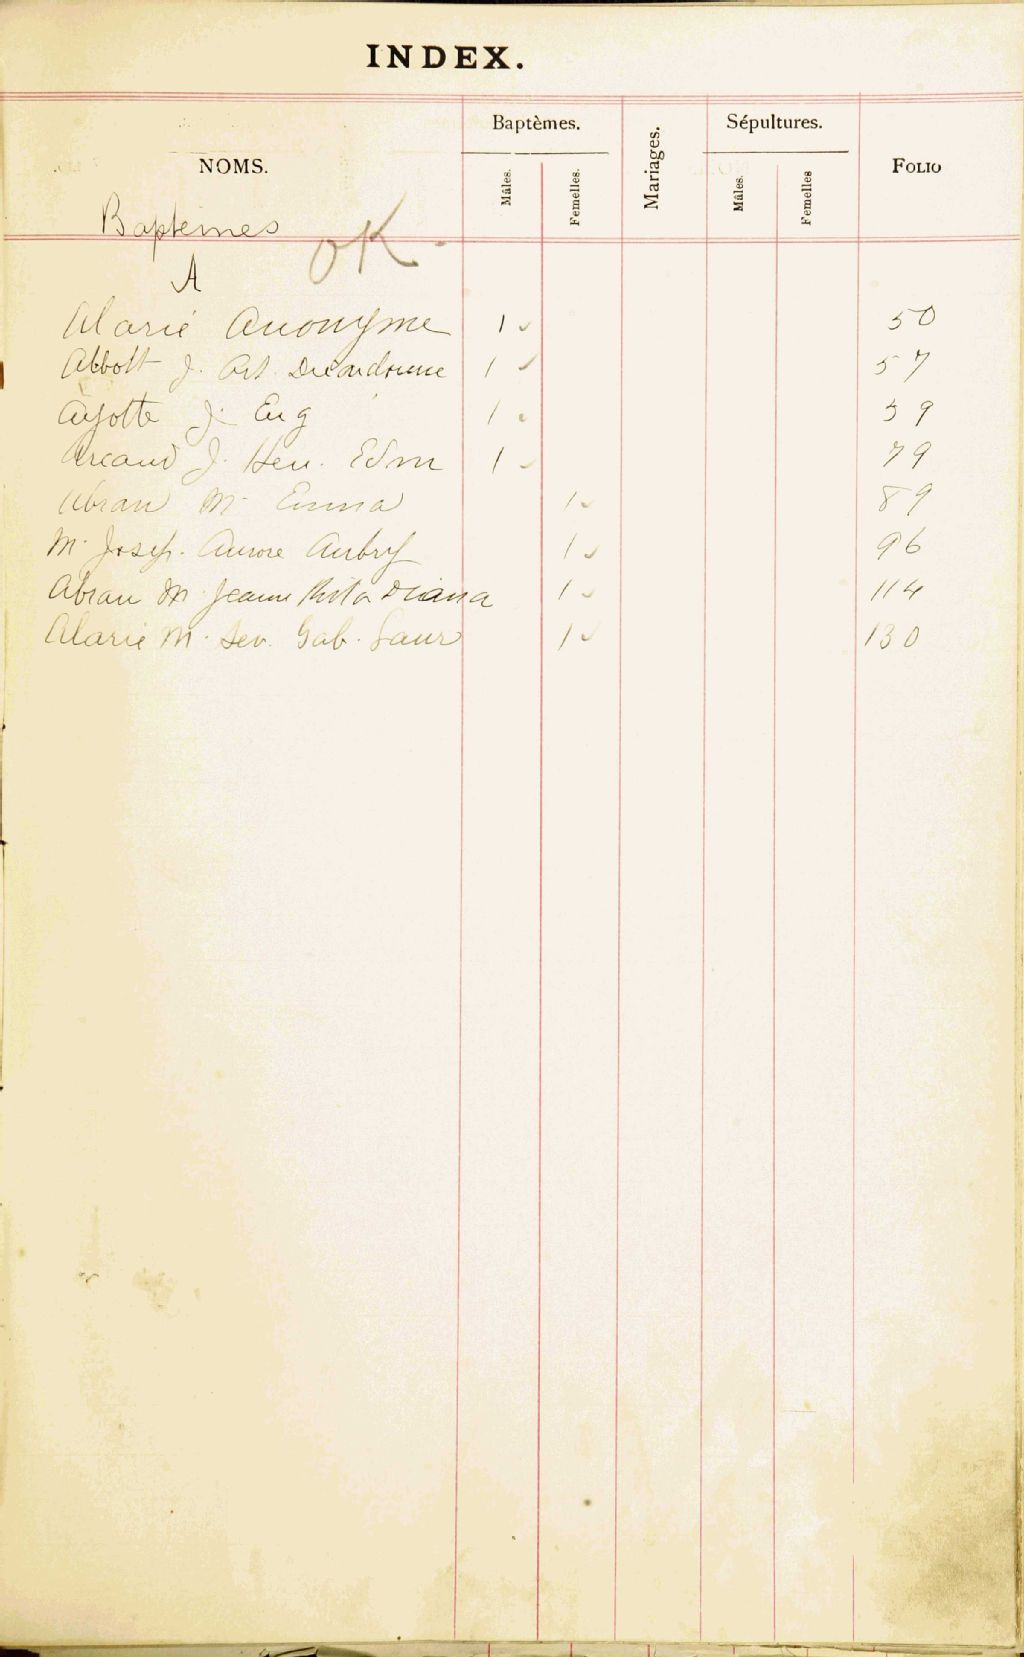 INDEX.
NOMS. Baptèmes. Mâles. Femelles. Mariages. Sépultures. Mâles. Femelles Folio
Baptemes OK.
A
Alarie Anonyme 1 50
Abbott J. Art. 1 57
Ayotte J. Eug 1 59
Arcand J. Hen. Edm 1 79
Abran M. Emma 1 89
M. Josep. Aurore Aubry 1 96
Abran M. Jeanne Rita Diana 1 114
Alarie M. Lev. Gab. Laur 1 130